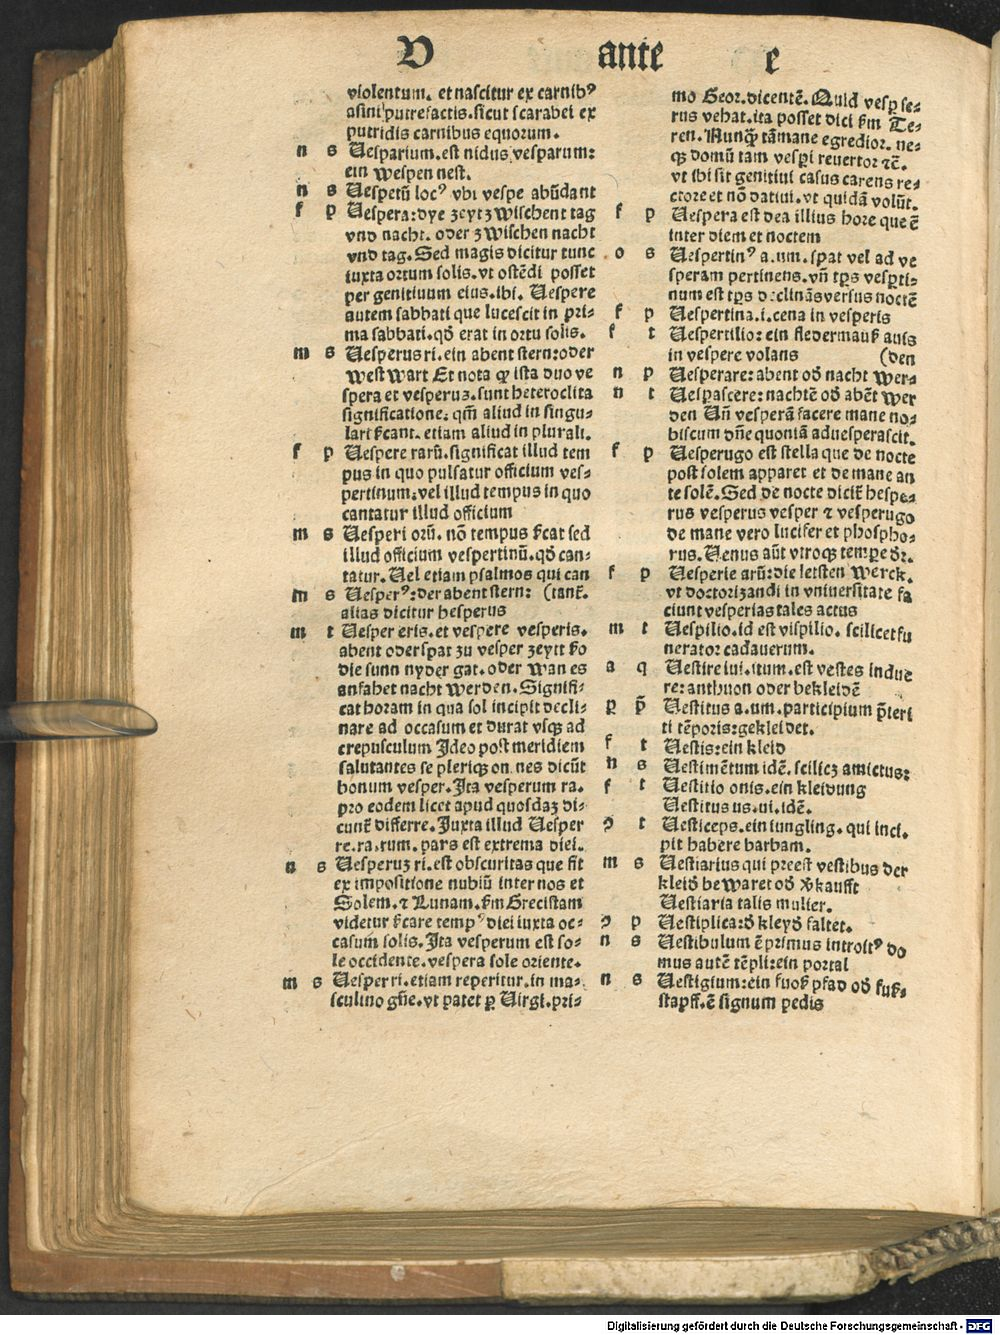 V ante e
violentum. et nascitur ex carnibꝰ
asini putrefactis. sicut scarabei ex
putridis carnibus equorum.
n s Vesparium. est nidus vesparum:
ein wespen nest.
n s Vespetū locꝰ vbi vespe abūdant
f p Vespera: dye zeyt zwischent tag
vnd nacht. oder zwischen nacht
vnd tag. Sed magis dicitur tunc
iuxta ortum solis. vt ostēdi posset
per genitiuum eius. ibi. Vespere
autem sabbati que lucescit in pri-
ma sabbati. qd̄ erat in ortu solis.
m s Vesperus ri. ein abent stern: oder
westwart Et nota ꝙ ista duo ve
spera et vesperuz. sunt heteroclita
significatione: qm̄ aliud in singu-
lari ſ̄cant. etiam aliud in plurali.
f p Vespere rarū. significat illud tem
pus in quo pulsatur officium ves-
pertinum: vel illud tempus in quo
cantatur illud officium
m s Vesperi orū. nō tempus ſ̄cat sed
illud officium vespertinū. qd̄ can-
tatur. Vel etiam psalmos qui can
m s Vesperꝰ: der abent stern: (tant̄.
alias dicitur hesperus
m t Vesper eris. et vespere vesperis.
abent oder spat zu vesper zeytt ſo
die sunn nyder gat. oder wan es
anfahet nacht werden. Signifi-
cat horam in qua sol incipit decli-
nare ad occasum et durat vsqꝫ ad
crepusculum Ideo post meridiem
salutantes se pleriqꝫ omnes dicūt
bonum vesper. Ita vesperum ra.
pro eodem licet apud quosdaz di-
cunt̄ differre. Iuxta illud Vesper
re. ra. rum. pars est extrema diei.
n s Vesperuz ri. est obscuritas que fit
ex impositione nubiū inter nos et
Solem. ⁊ Lunam. ſm Grecistam
videtur ſ̄care tempꝰ diei iuxta oc-
casum solis. Ita vesperum est so-
le occidente. vespera sole oriente.
m s Vesper ri. etiam reperitur. in ma-
sculino gn̄e. vt patet ꝑ Virgi. pri-
mo Geor. dicentē. Quid vesꝑ se-
rus vehat. ita posset dici ſm Te-
ren. Nunqꝫ tā mane egredior. ne-
qꝫ domū tam vesꝑi reuertor ⁊c̄.
vt ibi sit genitiui casus carens re-
ctore et nō datiui. vt quidā volūt.
f p Vespera est dea illius hore que ē
inter diem et noctem
o s Vespertinꝰ a. um. spat vel ad ve
speram pertinens. vn̄ tp̄s vesꝑti-
num est tp̄s declinās versus noctē
f p Vespertina. i. cena in vesperis
f t Vespertilio: ein fledermauß auis
in vespere volans (den
n p Vesperare: abent od̄ nacht wer-
n t Vesꝑascere: nachtē od̄ abēt wer
den Vn̄ vesperā facere mane no-
biscum dn̄e quoniā aduesperascit.
f p Vesperugo est stella que de nocte
post solem apparet et de mane an
te solē. Sed de nocte dicit̄ hespe-
rus vesperus vesper ⁊ vesperugo
de mane vero lucifer et phospho-
rus. Venus aūt vtroqꝫ temꝑe dr̄.
f p Vesperie arū: die letsten werck.
vt doctorizandi in vniuersitate fa
ciunt vesperias tales actus
m t Vespilio. id est vispilio. scilicet fu
nerator cadauerum.
a q Vestire iui. itum. est vestes indue
re: anthuon oder bekleidē
ꝑ p̄ Vestitus a. um. participium p̄teri
ti tēporis: gekleidet.
f t Vestis: ein kleid
n s Vestimētum idē. scilicz amictus:
f t Vestitio onis. ein kleidung
Vestitus us. ui. idē.
ꝯ t Vesticeps. ein iungling. qui inci.
pit habere barbam.
m s Vestiarius qui preest vestibus der
kleid bewaret od̄ v̄kaufft
Vestiaria talis mulier.
ꝯ p Vestiplica: d̄ kleyd̄ faltet.
n s Vestibulum ē primus introitꝰ do
mus autē tēpli: ein portal
n s Vestigium: ein fuoß pfad od̄ fuß-
stapff. ē signum pedis
Digitalisierung gefördert durch die Deutsche Forschungsgemeinschaft - DFG